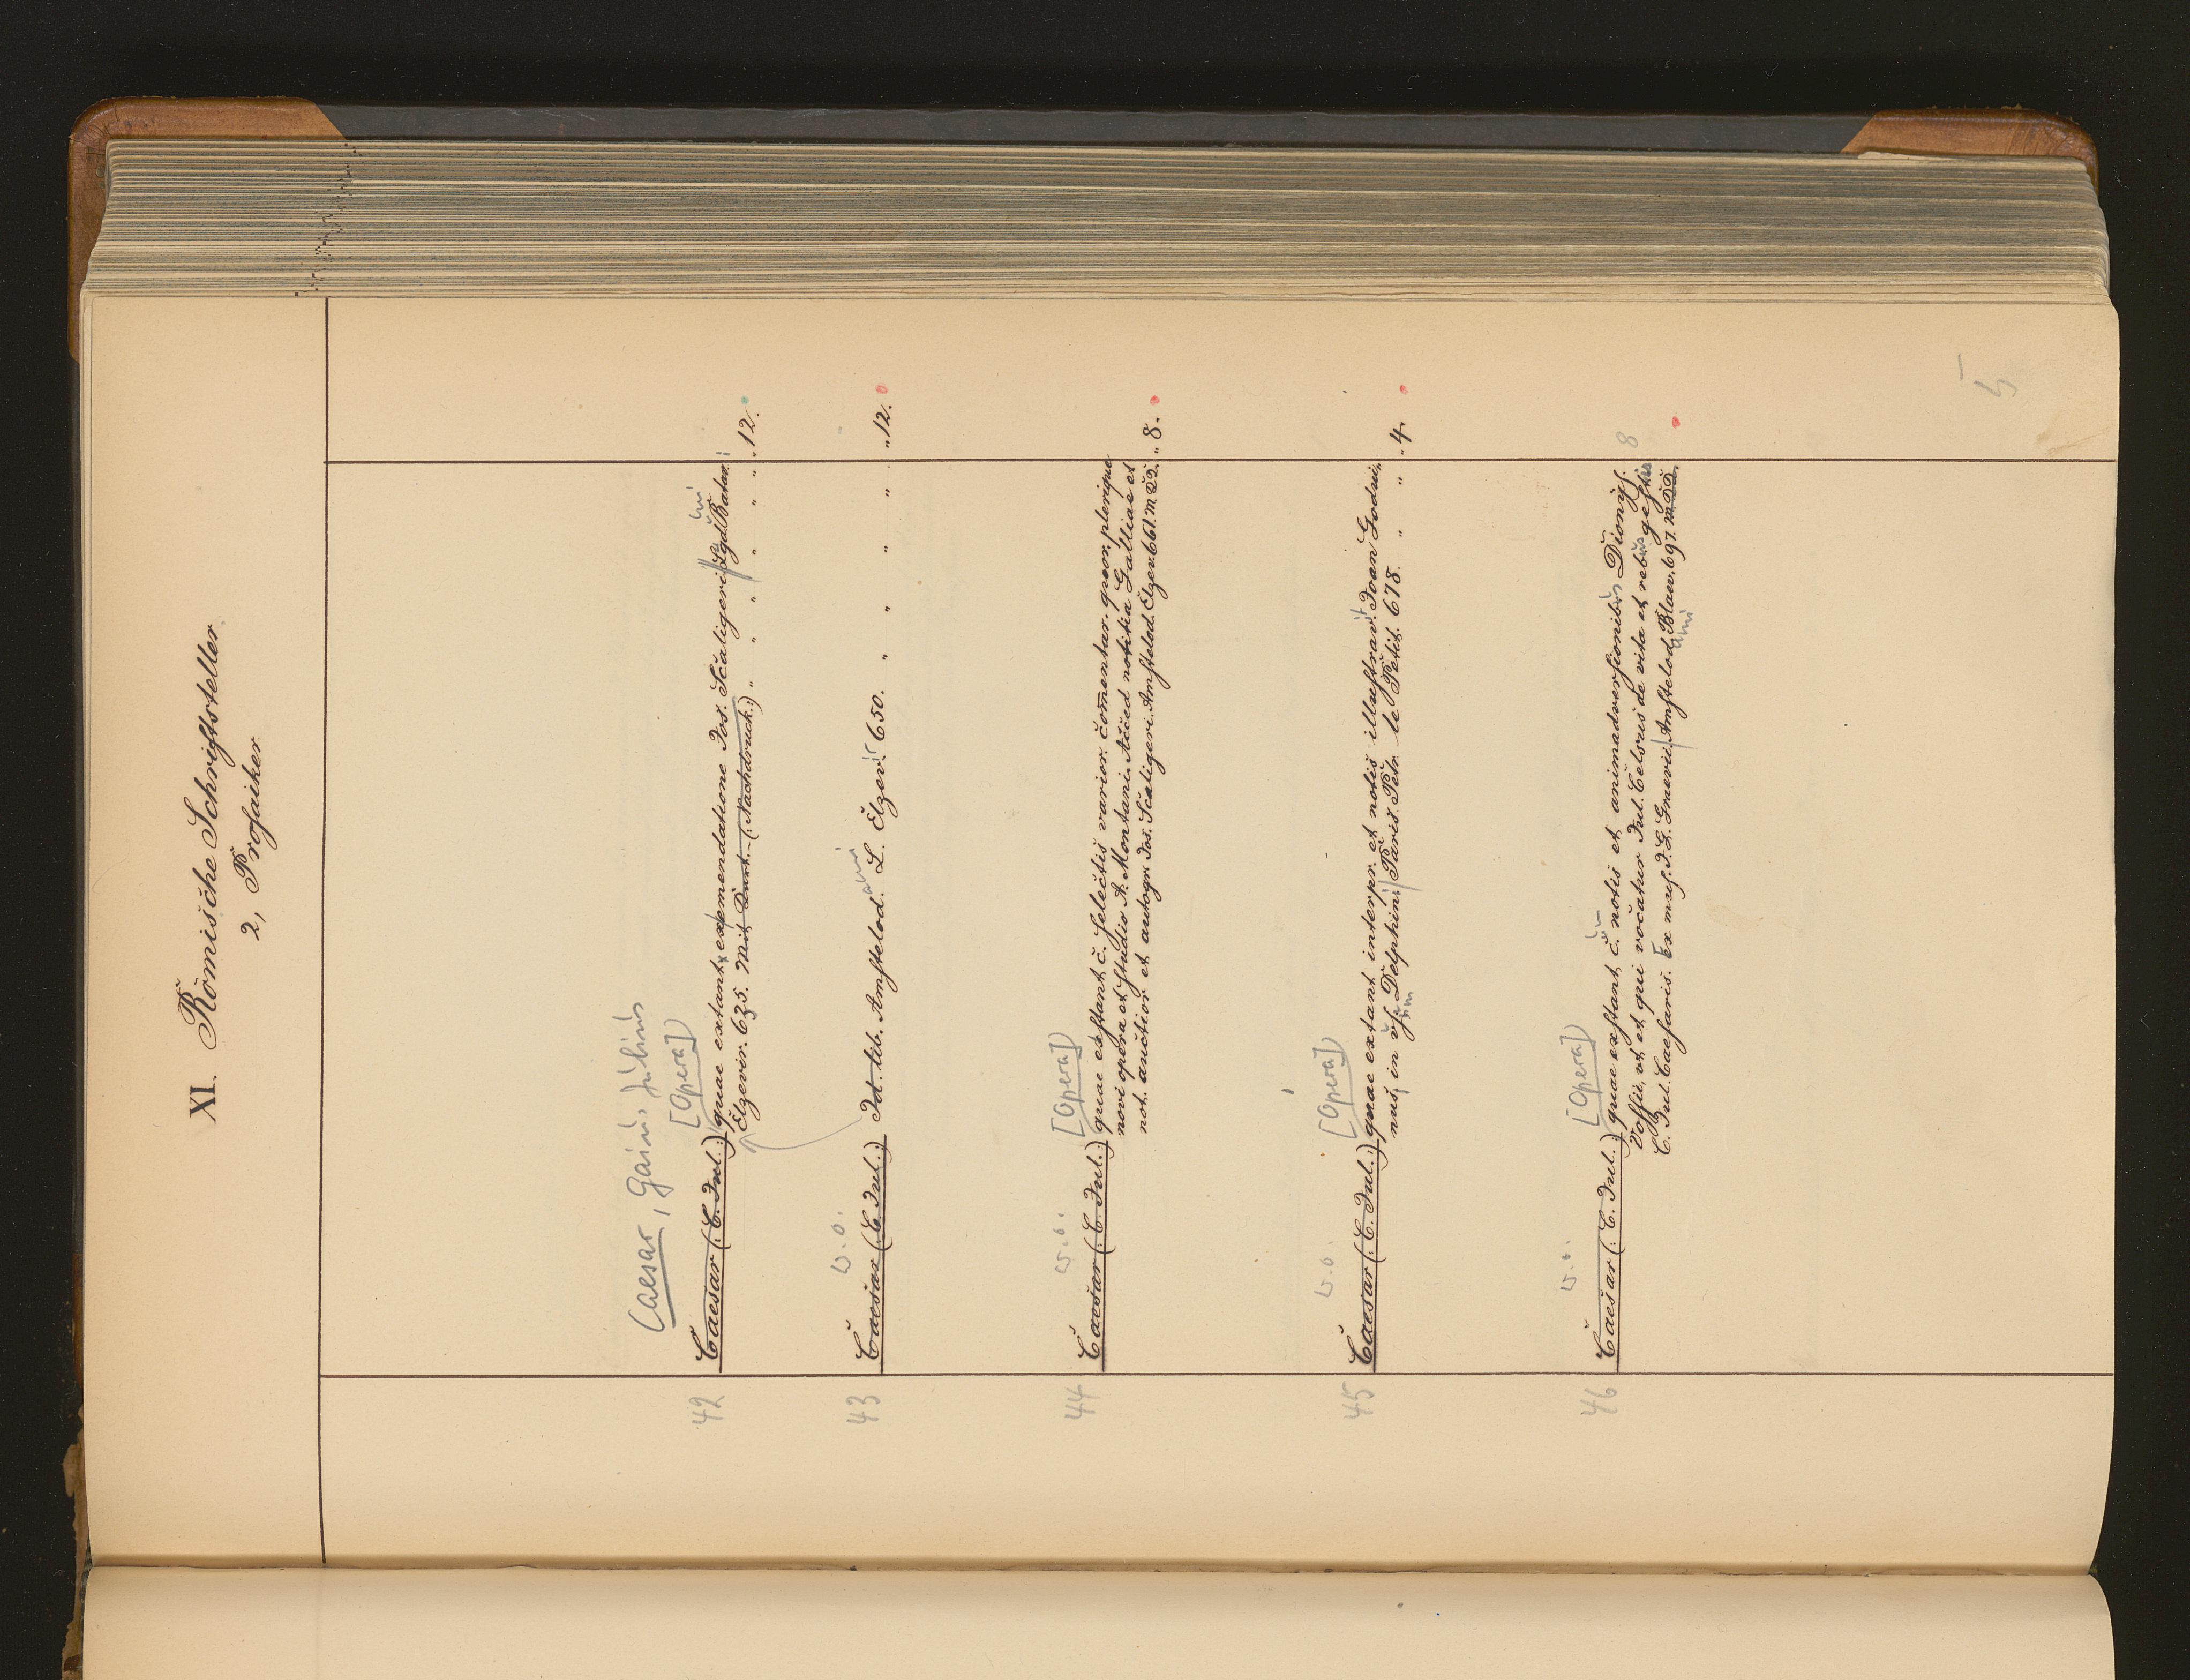 XI. Römische Schriftsteller
2, Prosaiker
Caesar, Gaius Julius
[Opera]
42 Caesar (: C. Jul. :) quae extant ex emendatione Jos. Scaligeri Lgd. Batav.
Elzevir. 635. Mit Port. (Nachdruck.) " " " " " " 12.
w. o.
43 Caesar (: C. Jul. :) Id. lib. Amstelod. L. Elzev. 650. " " " " " 12.
w. o. [Opera]
44 Caesar (: C. Jul. :) quae exstant c. selectis varior. com̄entar. quor. plerique
novi opera et studio A. Montani. Acced notitia Galliae et
not. auctior et autogr. Jos. Scaligeri. Amstelod. Elzev. 661. m. " 8.
w. o. [Opera]
45 Caesar (: C. Jul. :) quae extant interpr. et notis illustrav. Joan Godvi,
nus, in us. Delphini Paris. Petr. le Petit. 678. " " " 4.
w. o. [Opera]
46 Caesar (: C. Jul. :) quae exstant c. notis et animadversionibus Dionys.
Vossii, ut et qui vocatur Jul. Celsus de vita et rebus gestis 8
C. Jul. Caesaris. Ex mus. J. G. Graevii Amstelod. Blaev. 697. m.
5